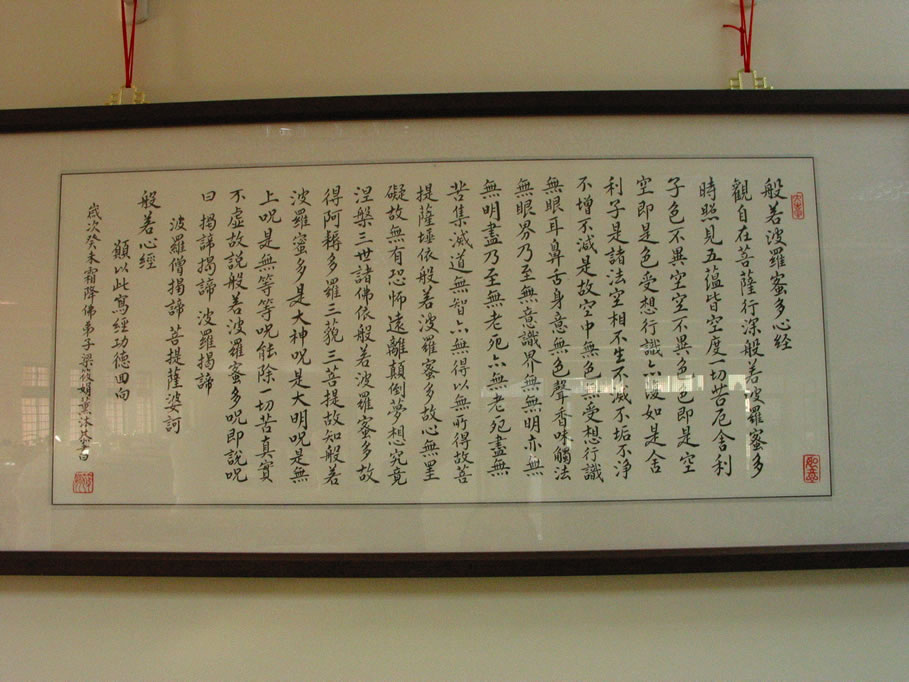 般若波羅蜜多心經
觀自在菩薩行深般若波羅蜜多
時照見五蘊皆空度一切苦厄舍利
子色不異空空不異色色即是空
空即是色受想行識亦復如是舍
利子是諸法空相不生不滅不垢不淨
不增不減是故空中無色無受想行識
無眼耳鼻舌身意無色聲香味觸法
無眼界乃至無意識界無無明亦無
無明盡乃至無老死亦無老死盡無
苦集滅道無智亦無得以無所得故菩
提薩埵依般若波羅蜜多故心無罣
礙故無有恐怖遠離顛倒夢想究竟
涅槃三世諸佛依般若波羅蜜多故
得阿耨多羅三藐三菩提故知般若
波羅蜜多是大神咒是大明咒是無
上咒是無等等咒能除一切苦真實
不虛故說般若波羅蜜多咒即說咒
曰 揭諦揭諦 波羅揭諦
波羅僧揭諦 菩提薩婆訶
般若心經
願以此寫經功德回向
歲次癸未霜降佛弟子梁筱娟薰沐恭書